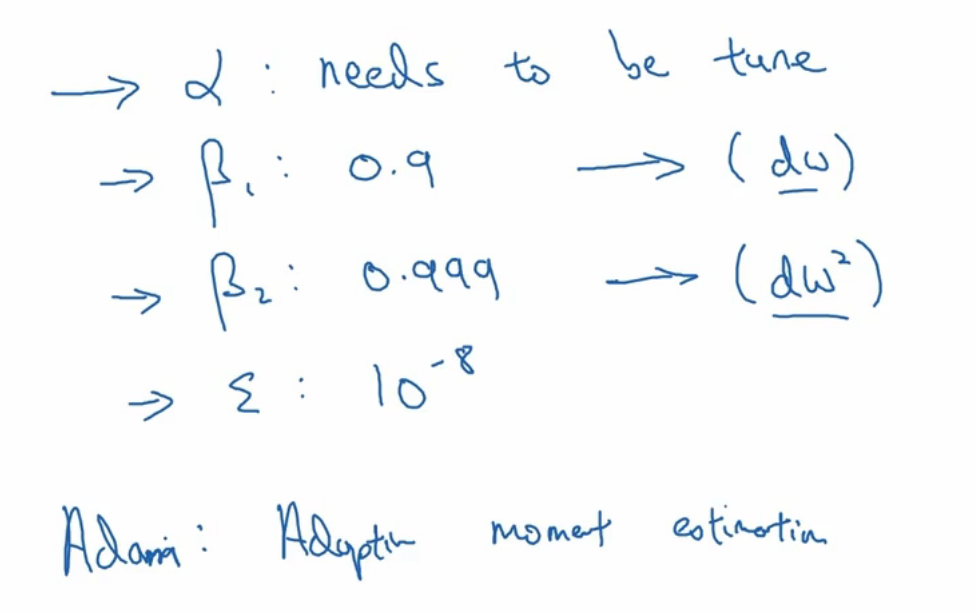 → α : needs to be tune
→ β₁ : 0.9 → (dw)
→ β₂ : 0.999 → (dw²)
→ ε : 10⁻⁸
Adam : Adaptive moment estimation